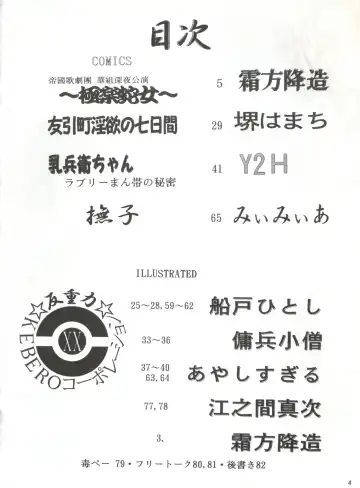 目次
COMICS
帝國歌劇團 華組深夜公演
〜極楽蛇女〜
5 霜方降造
友引町淫欲の七日間
29 堺はまち
乳兵衛ちゃん
ラブリーまん帯の秘密
41 Y2H
撫子
65 みぃみぃあ
ILLUSTRATED
25〜28,59〜62 船戸ひとし
33〜36 傭兵小僧
37〜40
63,64
あやしすぎる
77,78 江之間真次
3. 霜方降造
☆反重力☆
KEBERO
コーポ
XX
毒ペー 79・フリートーク80,81・後書き82
4